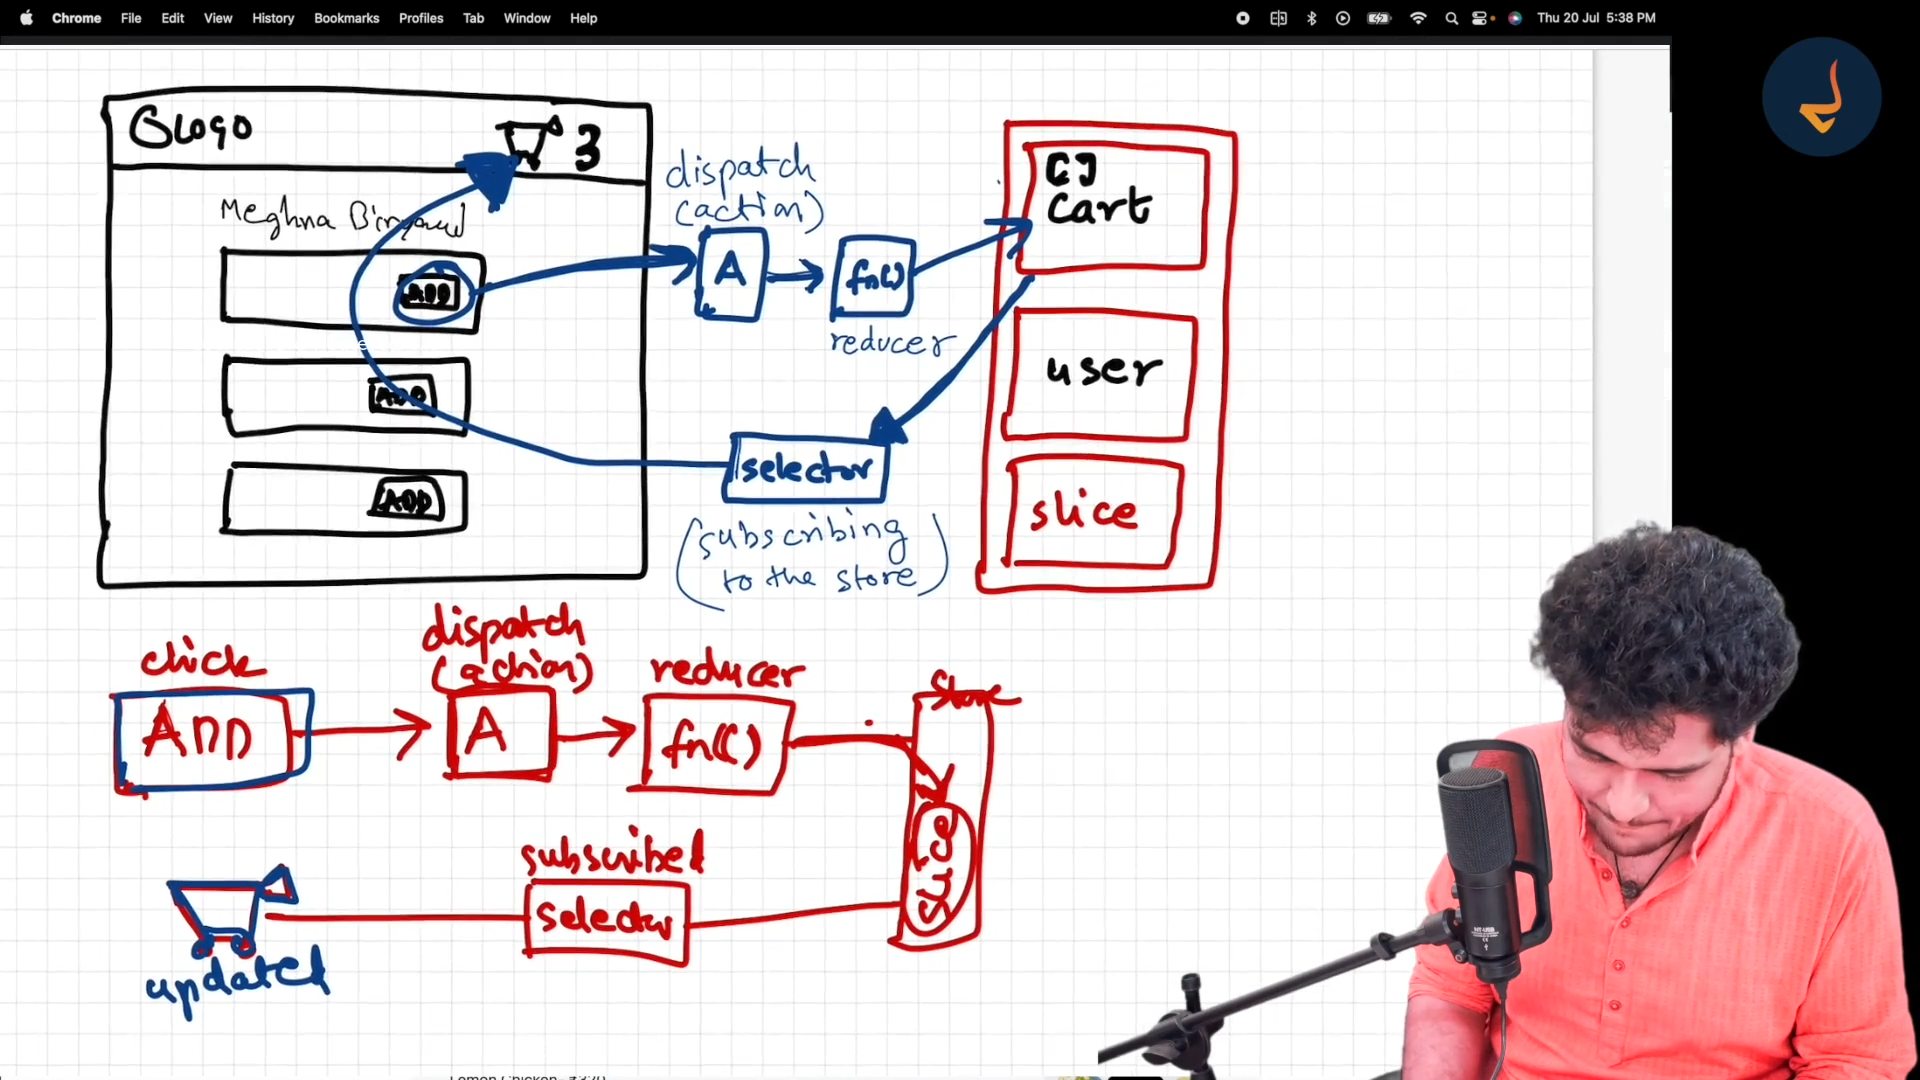 Chrome File Edit View History Bookmarks Profiles Tab Window Help
Thu 20 Jul 5:38 PM
Logo
3
Meghna Biryani
ADD
ADD
ADD
dispatch
(action)
A
fn()
reducer
selector
(subscribing
to the store)
[]
Cart
user
slice
click
ADD
dispatch
(action)
A
reducer
fn()
Store
slice
subscribed
selector
updated